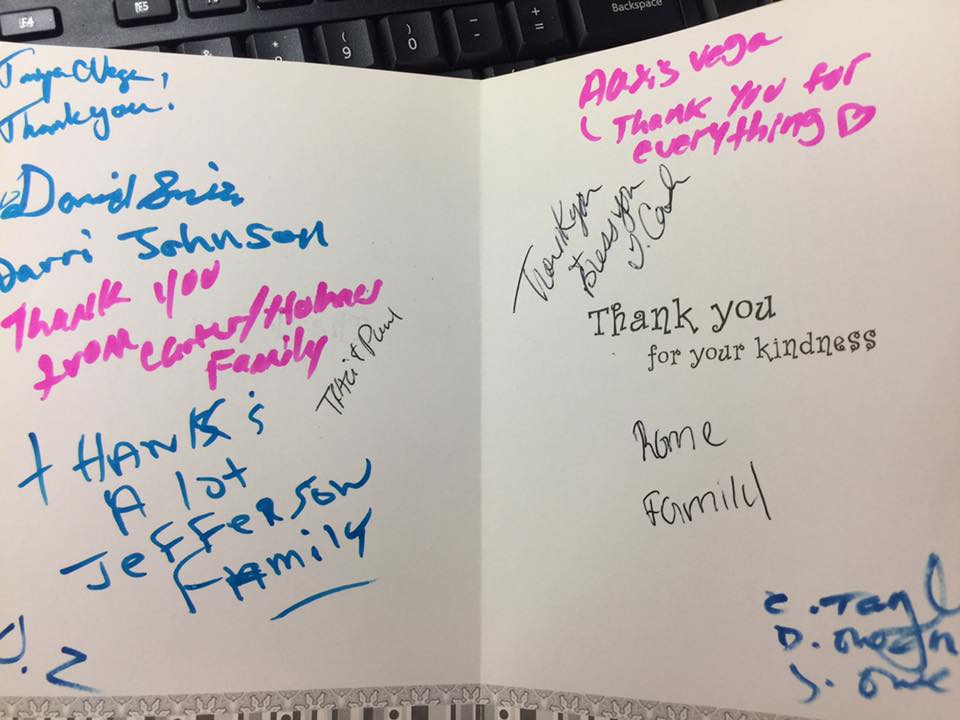 F4
F5
(
9
)
0
-
+
=
Backspace
Tanya C Vega,
Thank you!
David
Darri Johnson
Thank you
from Carter/Holmes
Family
Traci & Paul
THANK's
A lot
JeFFerson
Family
J. Z
Alexis Vega
(Thank you for
everything ♡
Thank you
+
Bless you
J. Cash
Thank you
for your kindness
Rome
Family
C.
D.
J.